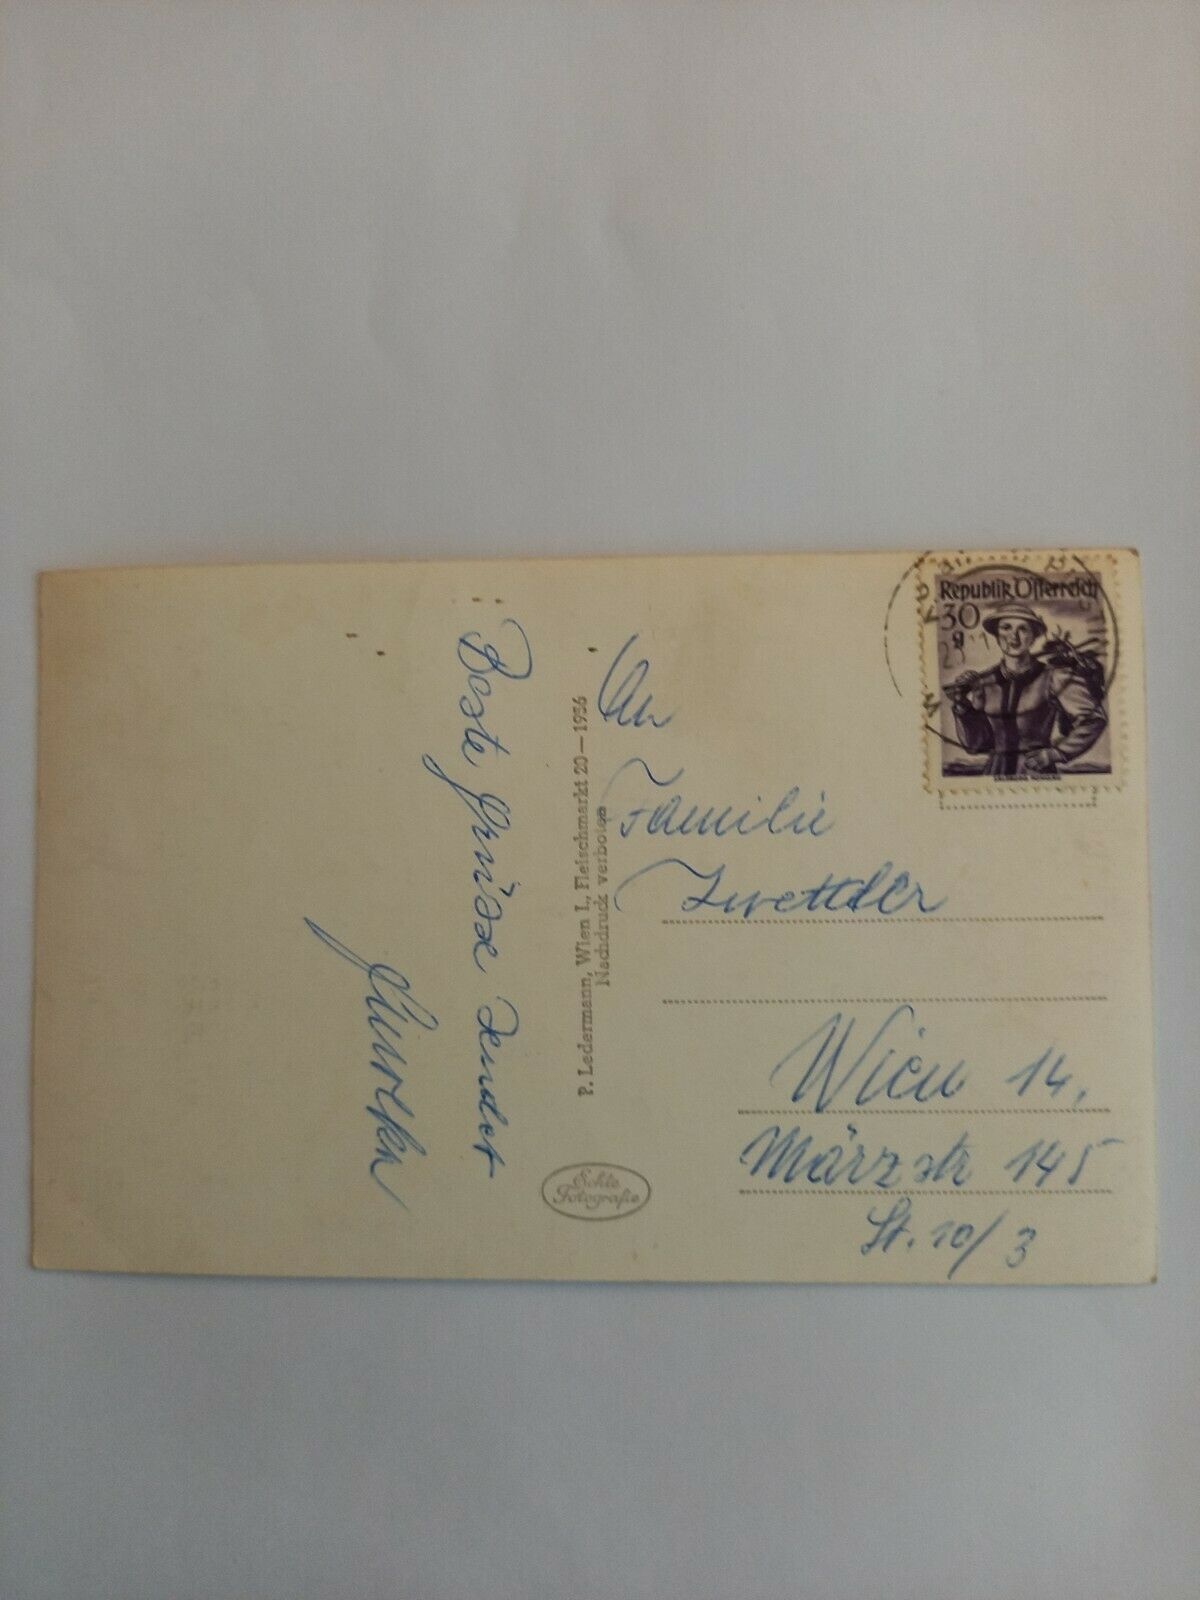 Beste Grüsse sendet
P. Ledermann, Wien I., Fleischmarkt 20—1956
Nachdruck verboten
Echte
Fotografie
Republik Österreich
30
g
An
Familie
Zwettler
Wien 14,
Märzstr 145
St. 10/3